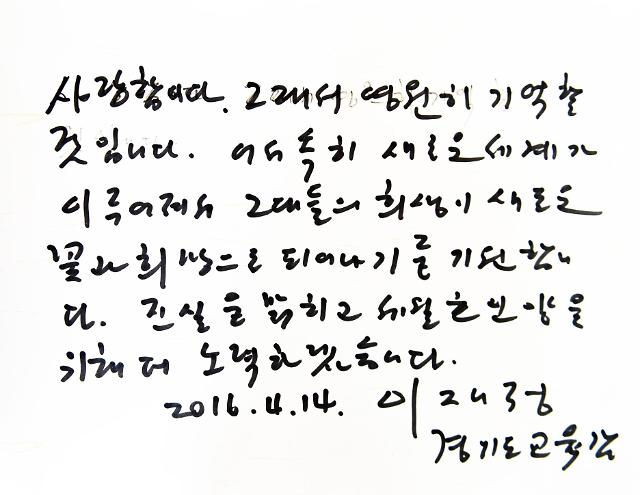 사랑합니다. 그래서 영원히 기억할
것입니다. 어서 속히 새로운 세계가
이루어져서 그대들의 희생이 새로운
꽃과 희망으로 피어나기를 기원합니
다. 진실을 밝히고 세월호 인양을
위해 더 노력하겠습니다.
2016.4.14. 이재정
경기도교육감